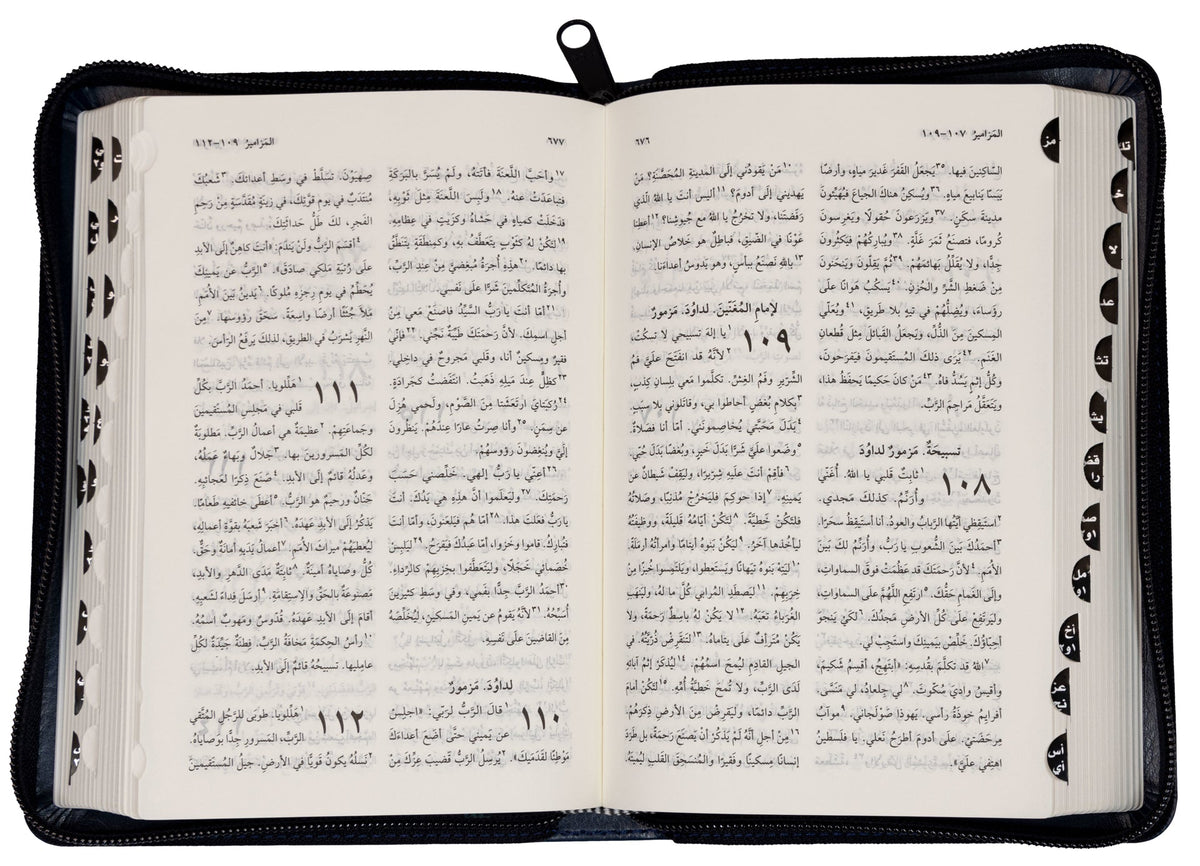 المَزامير ١٠٧-١٠٩
٦٧٦
السّاكِنينَ فيها. ٣٥يَجعَلُ القَفرَ غَديرَ مياهٍ، وأرضًا
يَبَسًا يَنابيعَ مياهٍ. ٣٦ويُسكِنُ هناكَ الجياعَ فيُهَيِّئونَ
مدينةَ سكَنٍ. ٣٧ويَزرَعونَ حُقولًا ويَغرِسونَ
كُرومًا، فتصنَعُ ثَمَرَ غَلَّةٍ. ٣٨ويُبارِكُهُمْ فيَكثُرونَ
جِدًّا، ولا يُقَلِّلُ بَهائمَهُمْ. ٣٩ثُمَّ يَقِلّونَ ويَنحَنونَ
مِنْ ضَغطِ الشَّرِّ والحُزنِ. ٤٠يَسكُبُ هَوانًا علَى
رؤَساءَ، ويُضِلُّهُمْ في تيهٍ بلا طريقٍ، ٤١ويُعَلّي
المِسكينَ مِنَ الذُّلِّ، ويَجعَلُ القَبائلَ مِثلَ قُطعانِ
الغَنَمِ. ٤٢يَرَى ذلكَ المُستَقيمونَ فيَفرَحونَ،
وكُلُّ إثمٍ يَسُدُّ فاهُ. ٤٣مَنْ كانَ حَكيمًا يَحفَظُ هذا،
ويَتَعَقَّلُ مَراحِمَ الرَّبِّ.
تسبيحَةٌ. مَزمورٌ لداوُدَ
١٠٨
١ثابِتٌ قَلبي يا اللهُ. أُغَنّي
وأُرَنِّمُ. كذلكَ مَجدي.
٢استَيقِظي أيَّتُها الرَّبابُ والعودُ. أنا أستَيقِظُ سحَرًا.
٣أحمَدُكَ بَينَ الشُّعوبِ يا رَبُّ، وأُرَنِّمُ لكَ بَينَ
الأُمَمِ. ٤لأنَّ رَحمَتَكَ قد عَظُمَتْ فوقَ السماواتِ،
وإلَى الغَمامِ حَقُّكَ. ٥ارتَفِعِ اللَّهُمَّ علَى السماواتِ،
وليَرتَفِعْ علَى كُلِّ الأرضِ مَجدُكَ. ٦لكَيْ يَنجوَ
أحِبّاؤُكَ. خَلِّصْ بيَمينِكَ واستَجِبْ لي.
٧اللهُ قد تكلَّمَ بقُدسِهِ: «أبتَهِجُ، أقسِمُ شَكيمَ،
وأقيسُ واديَ سُكّوتَ. ٨لي جِلعادُ، لي مَنَسَّى.
أفرايِمُ خوذَةُ رأسي. يَهوذا صَوْلَجاني. ٩موآبُ
مِرحَضَتي. علَى أدومَ أطرَحُ نَعلي. يا فلِسطينُ
اهتِفي علَيَّ».
١٠مَنْ يَقودُني إلَى المدينةِ المُحَصَّنَةِ؟ مَنْ
يَهديني إلَى أدومَ؟ ١١أليس أنتَ يا اللهُ الّذي
رَفَضتَنا، ولا تخرُجُ يا اللهُ مع جُيوشِنا؟ ١٢أعطِنا
عَوْنًا في الضّيقِ، فباطِلٌ هو خَلاصُ الإنسانِ.
١٣باللهِ نَصنَعُ ببأسٍ، وهو يَدوسُ أعداءَنا.
لإمامِ المُغَنّينَ. لداوُدَ. مَزمورٌ
١٠٩
١يا إلهَ تسبيحي لا تسكُتْ،
٢لأنَّهُ قد انفَتَحَ علَيَّ فمُ
الشِّرّيرِ وفَمُ الغِشِّ. تكلَّموا مَعي بلِسانِ كِذبٍ،
٣بكلامِ بُغضٍ أحاطوا بي، وقاتَلوني بلا سبَبٍ.
٤بَدَلَ مَحَبَّتي يُخاصِمونَني. أمّا أنا فصَلاةٌ.
٥وضَعوا علَيَّ شَرًّا بَدَلَ خَيرٍ، وبُغضًا بَدَلَ حُبّي.
٦فأقِمْ أنتَ علَيهِ شِرّيرًا، وليَقِفْ شَيطانٌ عن
يَمينِهِ. ٧إذا حوكِمَ فليَخرُجْ مُذنِبًا، وصَلاتُهُ
فلتَكُنْ خَطيَّةً. ٨لتَكُنْ أيّامُهُ قَليلَةً، ووظيفَتُهُ
ليأخُذها آخَرُ. ٩ليَكُنْ بَنوهُ أيتامًا وامرأتُهُ أرمَلَةً.
١٠ليَتِهْ بَنوهُ تيَهانًا ويَستَعطوا، ويَلتَمِسوا خُبزًا مِنْ
خِرَبِهِمْ. ١١ليَصطَدِ المُرابي كُلَّ ما لهُ، وليَنهَبِ
الغُرَباءُ تعَبَهُ. ١٢لا يَكُنْ لهُ باسِطٌ رَحمَةً، ولا
يَكُنْ مُتَرأفٌ علَى يتاماهُ. ١٣لتَنقَرِضْ ذُرّيَّتُهُ. في
الجيلِ القادِمِ ليُمحَ اسمُهُمْ. ١٤ليُذكَرْ إثمُ آبائهِ
لَدَى الرَّبِّ، ولا تُمحَ خَطيَّةُ أُمِّهِ. ١٥لتَكُنْ أمامَ
الرَّبِّ دائمًا، وليَقرِضْ مِنَ الأرضِ ذِكرَهُمْ.
١٦مِنْ أجلِ أنَّهُ لَمْ يَذكُرْ أنْ يَصنَعَ رَحمَةً، بل طَرَدَ
إنسانًا مِسكينًا وفَقيرًا والمُنسَحِقَ القَلبِ ليُميتَهُ.
٦٧٧
المَزامير ١٠٩-١١٢
١٧وأحَبَّ اللَّعنَةَ فأتَتهُ، ولَمْ يُسَرَّ بالبَرَكَةِ
فتباعَدَتْ عنهُ. ١٨ولَبِسَ اللَّعنَةَ مِثلَ ثَوْبِهِ،
فدَخَلَتْ كمياهٍ في حَشاهُ وكزَيتٍ في عِظامِهِ.
١٩لتَكُنْ لهُ كثَوْبٍ يتَعَطَّفُ بهِ، وكمِنطَقَةٍ يتَنَطَّقُ
بها دائمًا. ٢٠هذِهِ أُجرَةُ مُبغِضيَّ مِنْ عِندِ الرَّبِّ،
وأُجرَةُ المُتَكلِّمينَ شَرًّا علَى نَفسي.
٢١أمّا أنتَ يا رَبُّ السَّيِّدُ فاصنَعْ مَعي مِنْ
أجلِ اسمِكَ. لأنَّ رَحمَتَكَ طَيِّبَةٌ نَجِّني. ٢٢فإنّي
فقيرٌ ومِسكينٌ أنا، وقَلبي مَجروحٌ في داخِلي.
٢٣كظِلٍّ عِندَ مَيلِهِ ذَهَبتُ. انتَفَضتُ كجَرادَةٍ.
٢٤رُكبَتايَ ارتَعَشَتا مِنَ الصَّوْمِ، ولَحمي هُزِلَ
عن سِمَنٍ. ٢٥وأنا صِرتُ عارًا عِندَهُمْ. يَنظُرونَ
إلَيَّ ويُنغِضونَ رؤوسَهُمْ.
٢٦أعِنّي يا رَبُّ إلهي. خَلِّصني حَسَبَ
رَحمَتِكَ. ٢٧وليَعلَموا أنَّ هذِهِ هي يَدُكَ. أنتَ
يا رَبُّ فعَلتَ هذا. ٢٨أمّا هُم فيَلعَنونَ، وأمّا أنتَ
فتُبارِكُ. قاموا وخَزوا، أمّا عَبدُكَ فيَفرَحُ. ٢٩ليَلبِسْ
خُصَمائي خَجَلًا، وليَتَعَطَّفوا بخِزيِهِمْ كالرِّداءِ.
٣٠أحمَدُ الرَّبَّ جِدًّا بفَمي، وفي وسَطِ كثيرينَ
أُسَبِّحُهُ. ٣١لأنَّهُ يَقومُ عن يَمينِ المِسكينِ، ليُخَلِّصَهُ
مِنَ القاضينَ علَى نَفسِهِ.
لداوُدَ. مَزمورٌ
١١٠
١قالَ الرَّبُّ لرَبّي: «اجلِسْ
عن يَميني حتَّى أضَعَ أعداءَكَ
مَوْطِئًا لقَدَمَيكَ». ٢يُرسِلُ الرَّبُّ قَضيبَ عِزِّكَ مِنْ
صِهيَوْنَ. تسَلَّطْ في وسَطِ أعدائكَ. ٣شَعبُكَ
مُنتَدَبٌ في يومِ قوَّتِكَ، في زينَةٍ مُقَدَّسَةٍ مِنْ رَحِمِ
الفَجرِ، لكَ طَلُّ حَداثَتِكَ.
٤أقسَمَ الرَّبُّ ولَنْ يَندَمَ: «أنتَ كاهِنٌ إلَى الأبدِ
علَى رُتبَةِ مَلكي صادَقَ». ٥الرَّبُّ عن يَمينِكَ
يُحَطِّمُ في يومِ رِجزِهِ مُلوكًا. ٦يَدينُ بَينَ الأُمَمِ.
مَلأَ جُثَثًا أرضًا واسِعَةً. سحَقَ رؤوسها. ٧مِنَ
النَّهرِ يَشرَبُ في الطريقِ، لذلكَ يَرفَعُ الرّأسَ.
١١١
١هَلِّلويا. أحمَدُ الرَّبَّ بكُلِّ
قَلبي في مَجلِسِ المُستَقيمينَ
وجَماعَتِهِمْ. ٢عظيمَةٌ هي أعمالُ الرَّبِّ. مَطلوبَةٌ
لكُلِّ المَسرورينَ بها. ٣جَلالٌ وبَهاءٌ عَمَلُهُ،
وعَدلُهُ قائمٌ إلَى الأبدِ. ٤صَنَعَ ذِكرًا لعَجائبِهِ.
حَنّانٌ ورحيمٌ هو الرَّبُّ. ٥أعطَى خائفيهِ طَعامًا.
يَذكُرُ إلَى الأبدِ عَهدَهُ. ٦أخبَرَ شَعبَهُ بقوَّةِ أعمالِهِ،
ليُعطيَهُمْ ميراثَ الأُمَمِ. ٧أعمالُ يَدَيهِ أمانَةٌ وحَقٌّ.
كُلُّ وصاياهُ أمينَةٌ. ٨ثابِتَةٌ مَدَى الدَّهرِ والأبدِ،
مَصنوعَةٌ بالحَقِّ والِاستِقامَةِ. ٩أرسَلَ فِداءً لشَعبِهِ.
أقامَ إلَى الأبدِ عَهدَهُ. قُدّوسٌ ومَهوبٌ اسمُهُ.
١٠رأسُ الحِكمَةِ مَخافَةُ الرَّبِّ. فِطنَةٌ جَيِّدَةٌ لكُلِّ
عامِليها. تسبيحُهُ قائمٌ إلَى الأبدِ.
١١٢
١هَلِّلويا. طوبَى للرَّجُلِ المُتَّقي
الرَّبَّ، المَسرورِ جِدًّا بوَصاياهُ.
٢نَسلُهُ يكونُ قَويًّا في الأرضِ. جيلُ المُستَقيمينَ
مز
تك
خر
لا
عد
تث
يش
قض
را
مل
او٢
أخ
او٢
عز
نح
أس
أي